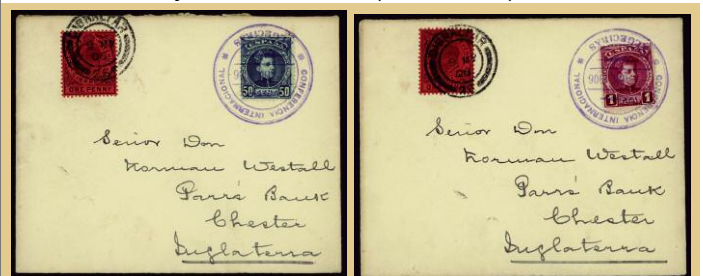 GIBRALTAR
ONE PENNY
ESPAÑA
50 50
CONFERENCIA INTERNACIONAL
ALGECIRAS
Senior Don
Norman Westall
Parrs' Bank
Chester
Inglaterra
GIBRALTAR
ESPAÑA
1 1
CONFERENCIA INTERNACIONAL
ALGECIRAS
Senior Don
Norman Westall
Parrs' Bank
Chester
Inglaterra